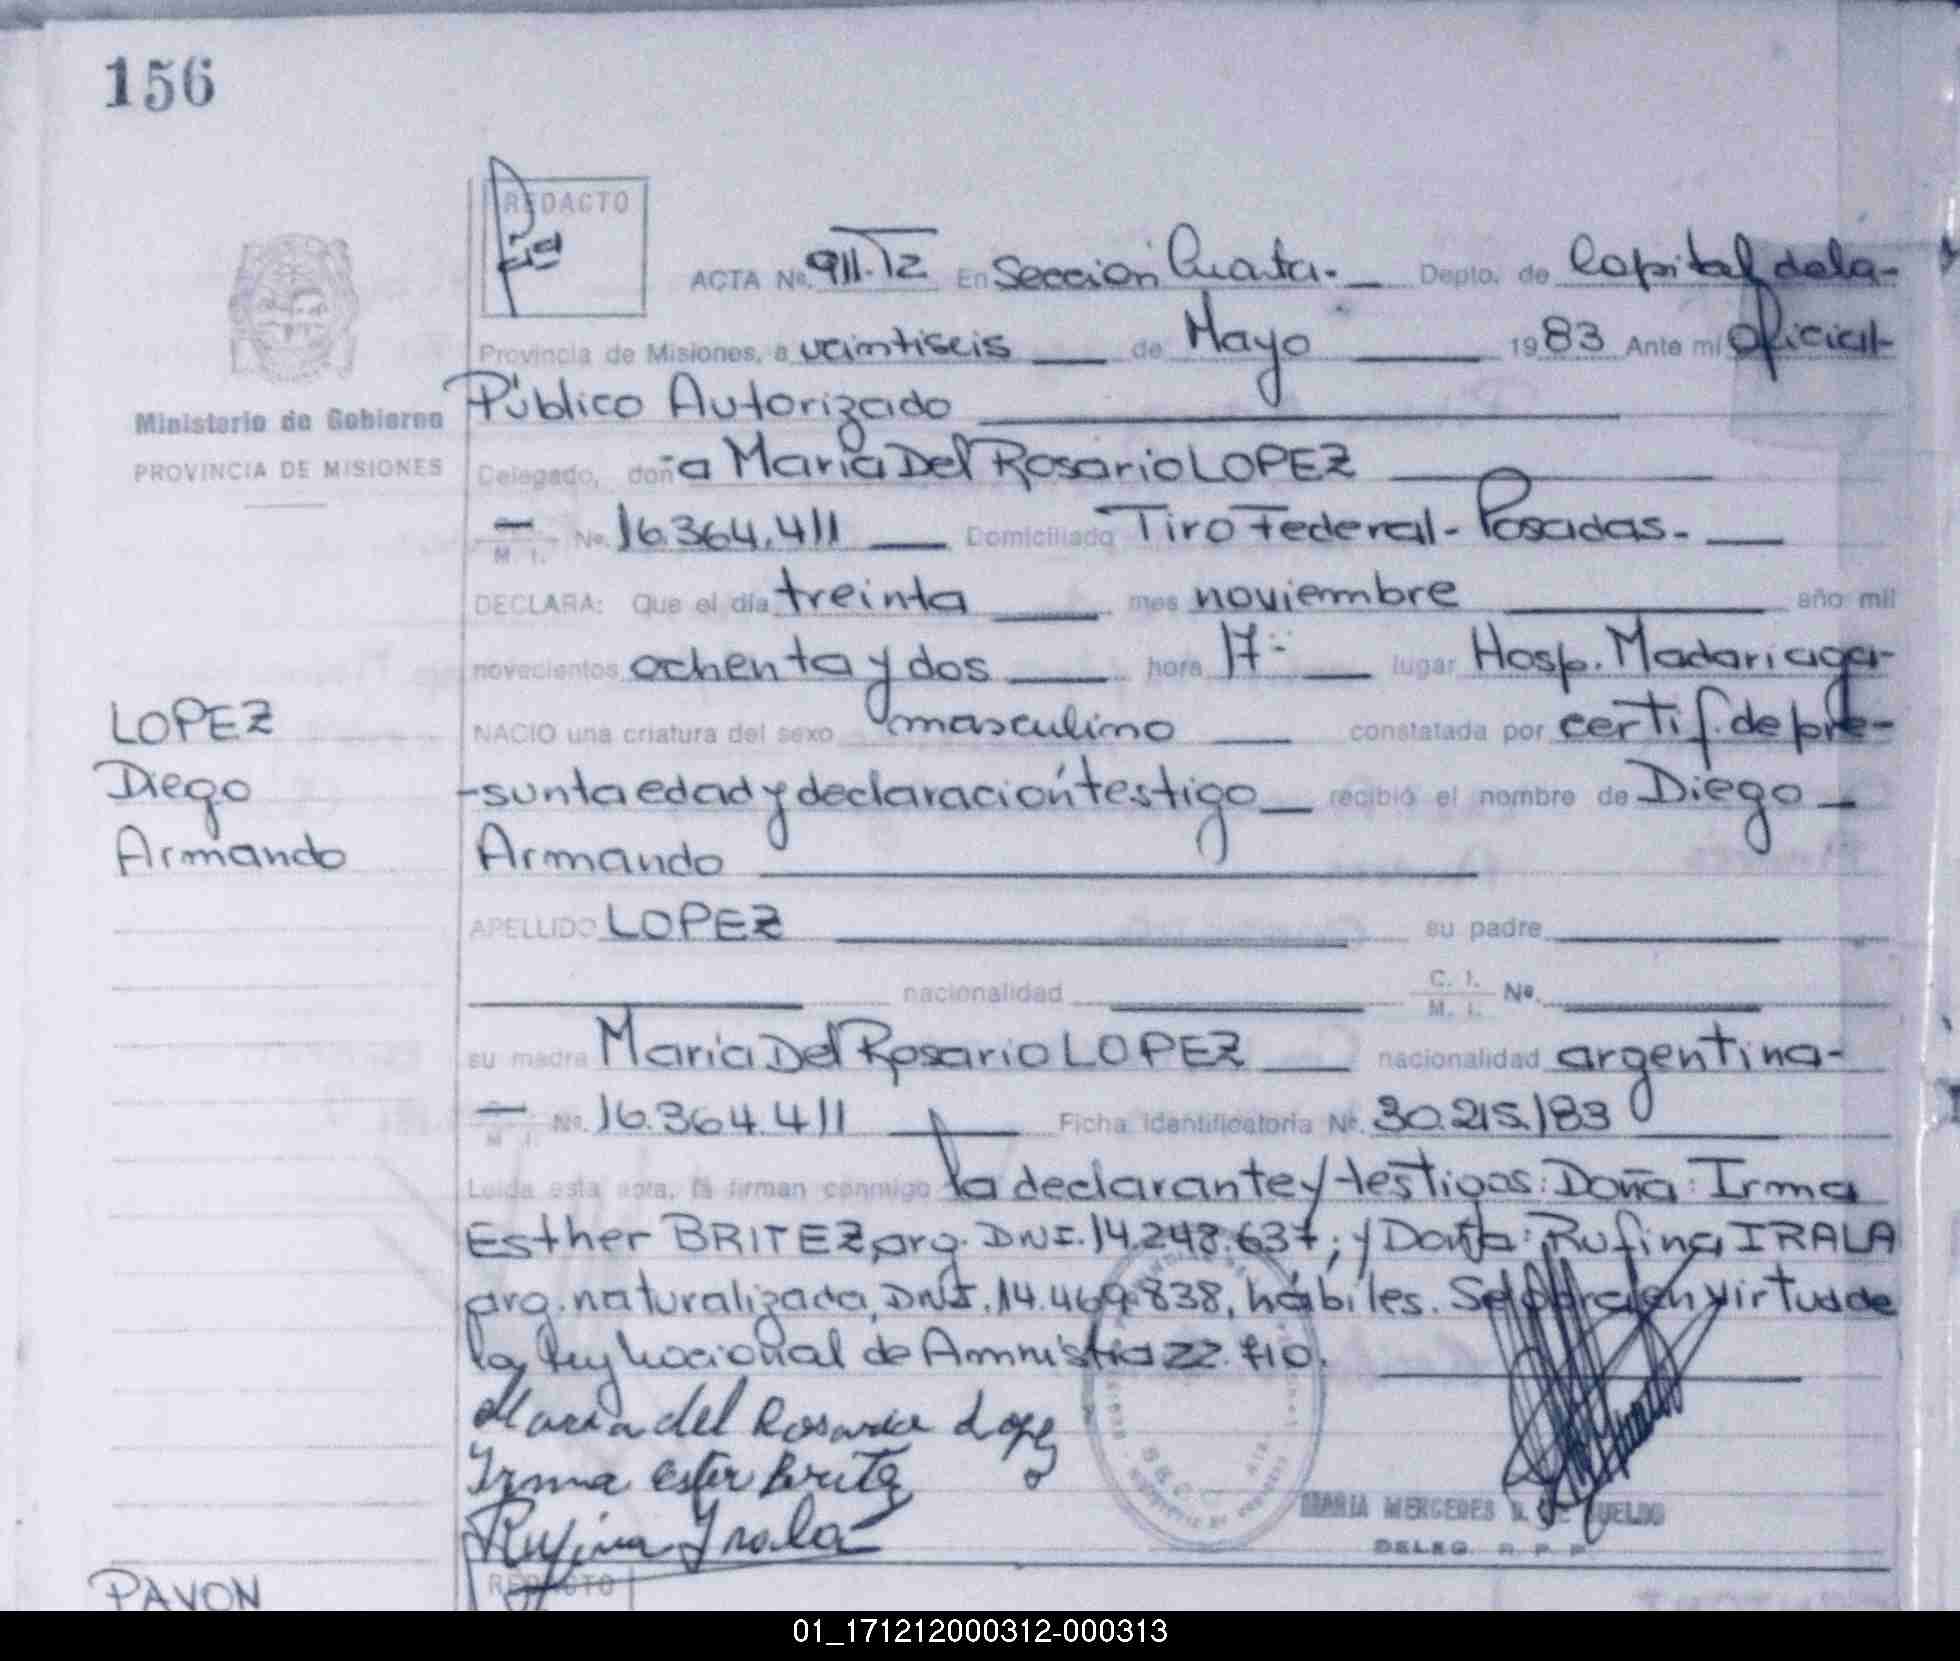 156
REDACTO
ACTA Nº. 911.T2 En Sección Cuarta.- Depto. de Capital de la-
Provincia de Misiones, a veintiseis de Mayo 1983 Ante mí oficial-
Público Autorizado
Ministerio de Gobierno
PROVINCIA DE MISIONES
Delegado, doña María Del Rosario LOPEZ
M. I. No. 16.364.411 Domiciliado Tiro Federal - Posadas.-
DECLARA: Que el día treinta mes noviembre año mil
novecientos ochenta y dos hora 17:- lugar Hosp. Madariaga-
NACIO una criatura del sexo masculino constatada por certif. de pre-
-sunta edad y declaración testigo recibió el nombre de Diego
Armando
LOPEZ
Diego
Armando
APELLIDO LOPEZ su padre
nacionalidad C. I. M. I. Nº.
su madre María Del Rosario LOPEZ nacionalidad argentina-
M. I. No. 16.364.411 Ficha identificatoria Nº. 30.215/83
Leída esta acta, la firman conmigo la declarante y testigos: Doña: Irma
Esther BRITEZ, arg. DNI. 14.248.637; y Doña: Rufina IRALA
arg. naturalizada, DNI. 14.469.838, hábiles. Se labra en virtud de
la ley Nacional de Amnistia 22.410.
Maria del Rosario Lopez
Irma Ester Britez
Rufina Irala
MARIA MERCEDES
DELEG. R. P. P.
PAVON
REDACTO
01_171212000312-000313